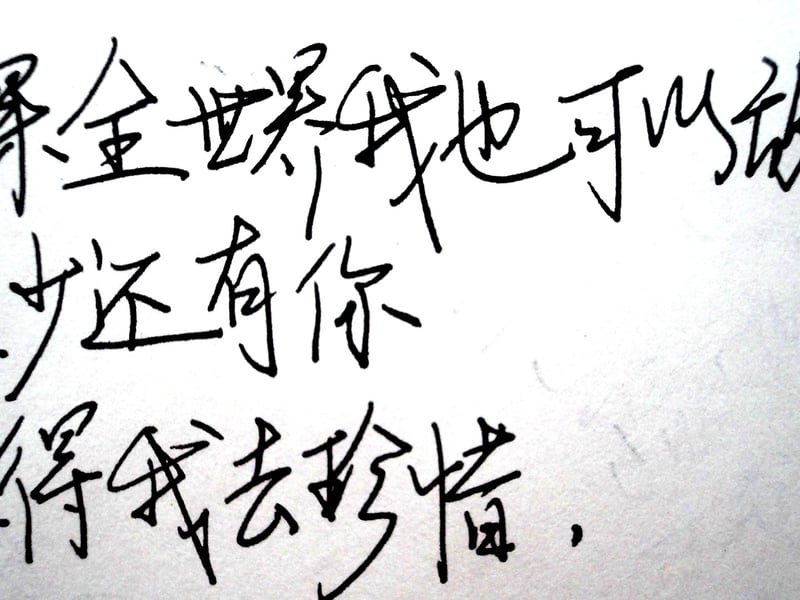 果全世界我也可以放
少还有你
得我去珍惜，